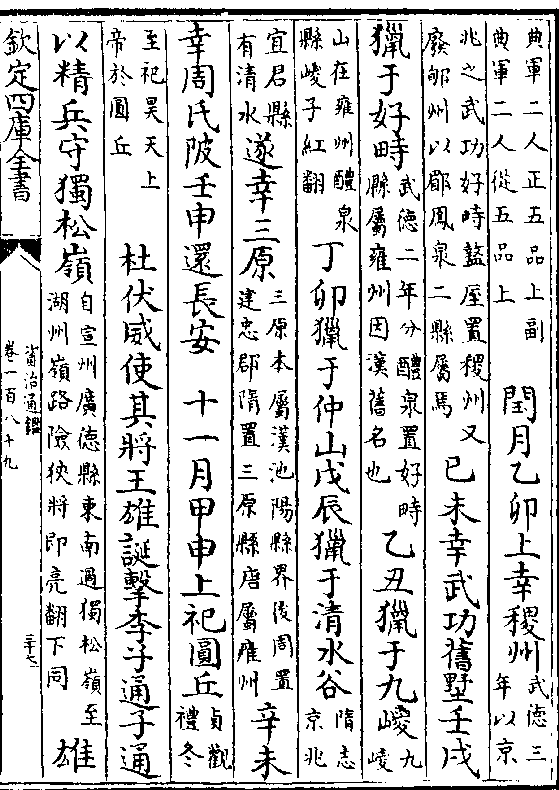 典軍二人正五品上副
典軍二人從五品上
閏月乙卯上幸稷州
武德三
年以京
兆之武功好畤盩厔置稷州又
廢郇州以郿鳳泉二縣屬焉
己未幸武功舊墅壬戌
獵于好畤
武德二年分醴泉置好畤
縣屬雍州因漢舊名也
乙丑獵于九嵕
九
嵕
山在雍州醴泉
縣嵕子紅翻
丁卯獵于仲山戊辰獵于清水谷
隋志
京兆
宜君縣
有清水
遂幸三原
三原本屬漢池陽縣界後周置
建忠郡隋置三原縣唐屬雍州
辛未
幸周氏陂壬申還長安　十一月甲申上祀圓丘
貞觀
禮冬
至祀昊天上
帝於圓丘
杜伏威使其將王雄誕擊李子通子通
以精兵守獨松嶺
自宣州廣德縣東南過獨松嶺至
湖州嶺路險狹將即亮翻下同
雄
欽定四庫全書
資治通鑑
卷一百八十九
三十七